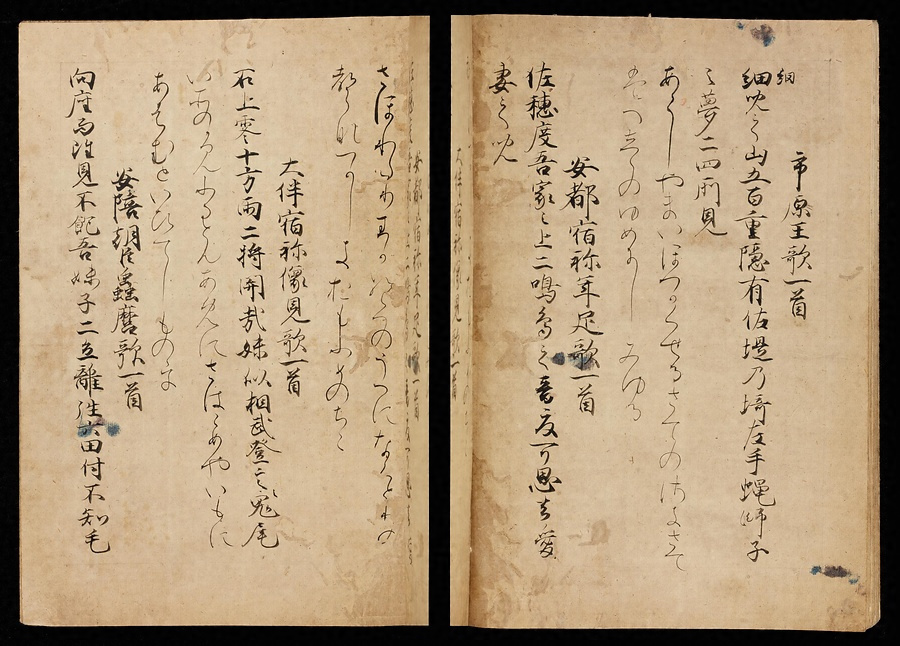 細
市原王歌一首
細児之山五百重隠有佐堤乃埼左手蝿師子
之夢二四所見
やまいほつかくせるさての さて
のゆめにし みゆる
安都宿祢年足歌一首
佐穂度吾家之上二鳴鳥之音夏可思吉愛
妻之児
さほわたりわかいへのうへになくとりの
大伴宿祢像見歌一首
石上零十方雨二将関哉妹似相武登言 鬼尾
いそのかみふるともあめにさはらめやいもに
あはむといひてしものを
安陪朝臣蟲麿歌一首
向座而雖見不飽吾妹子二立離徃六田付不知毛